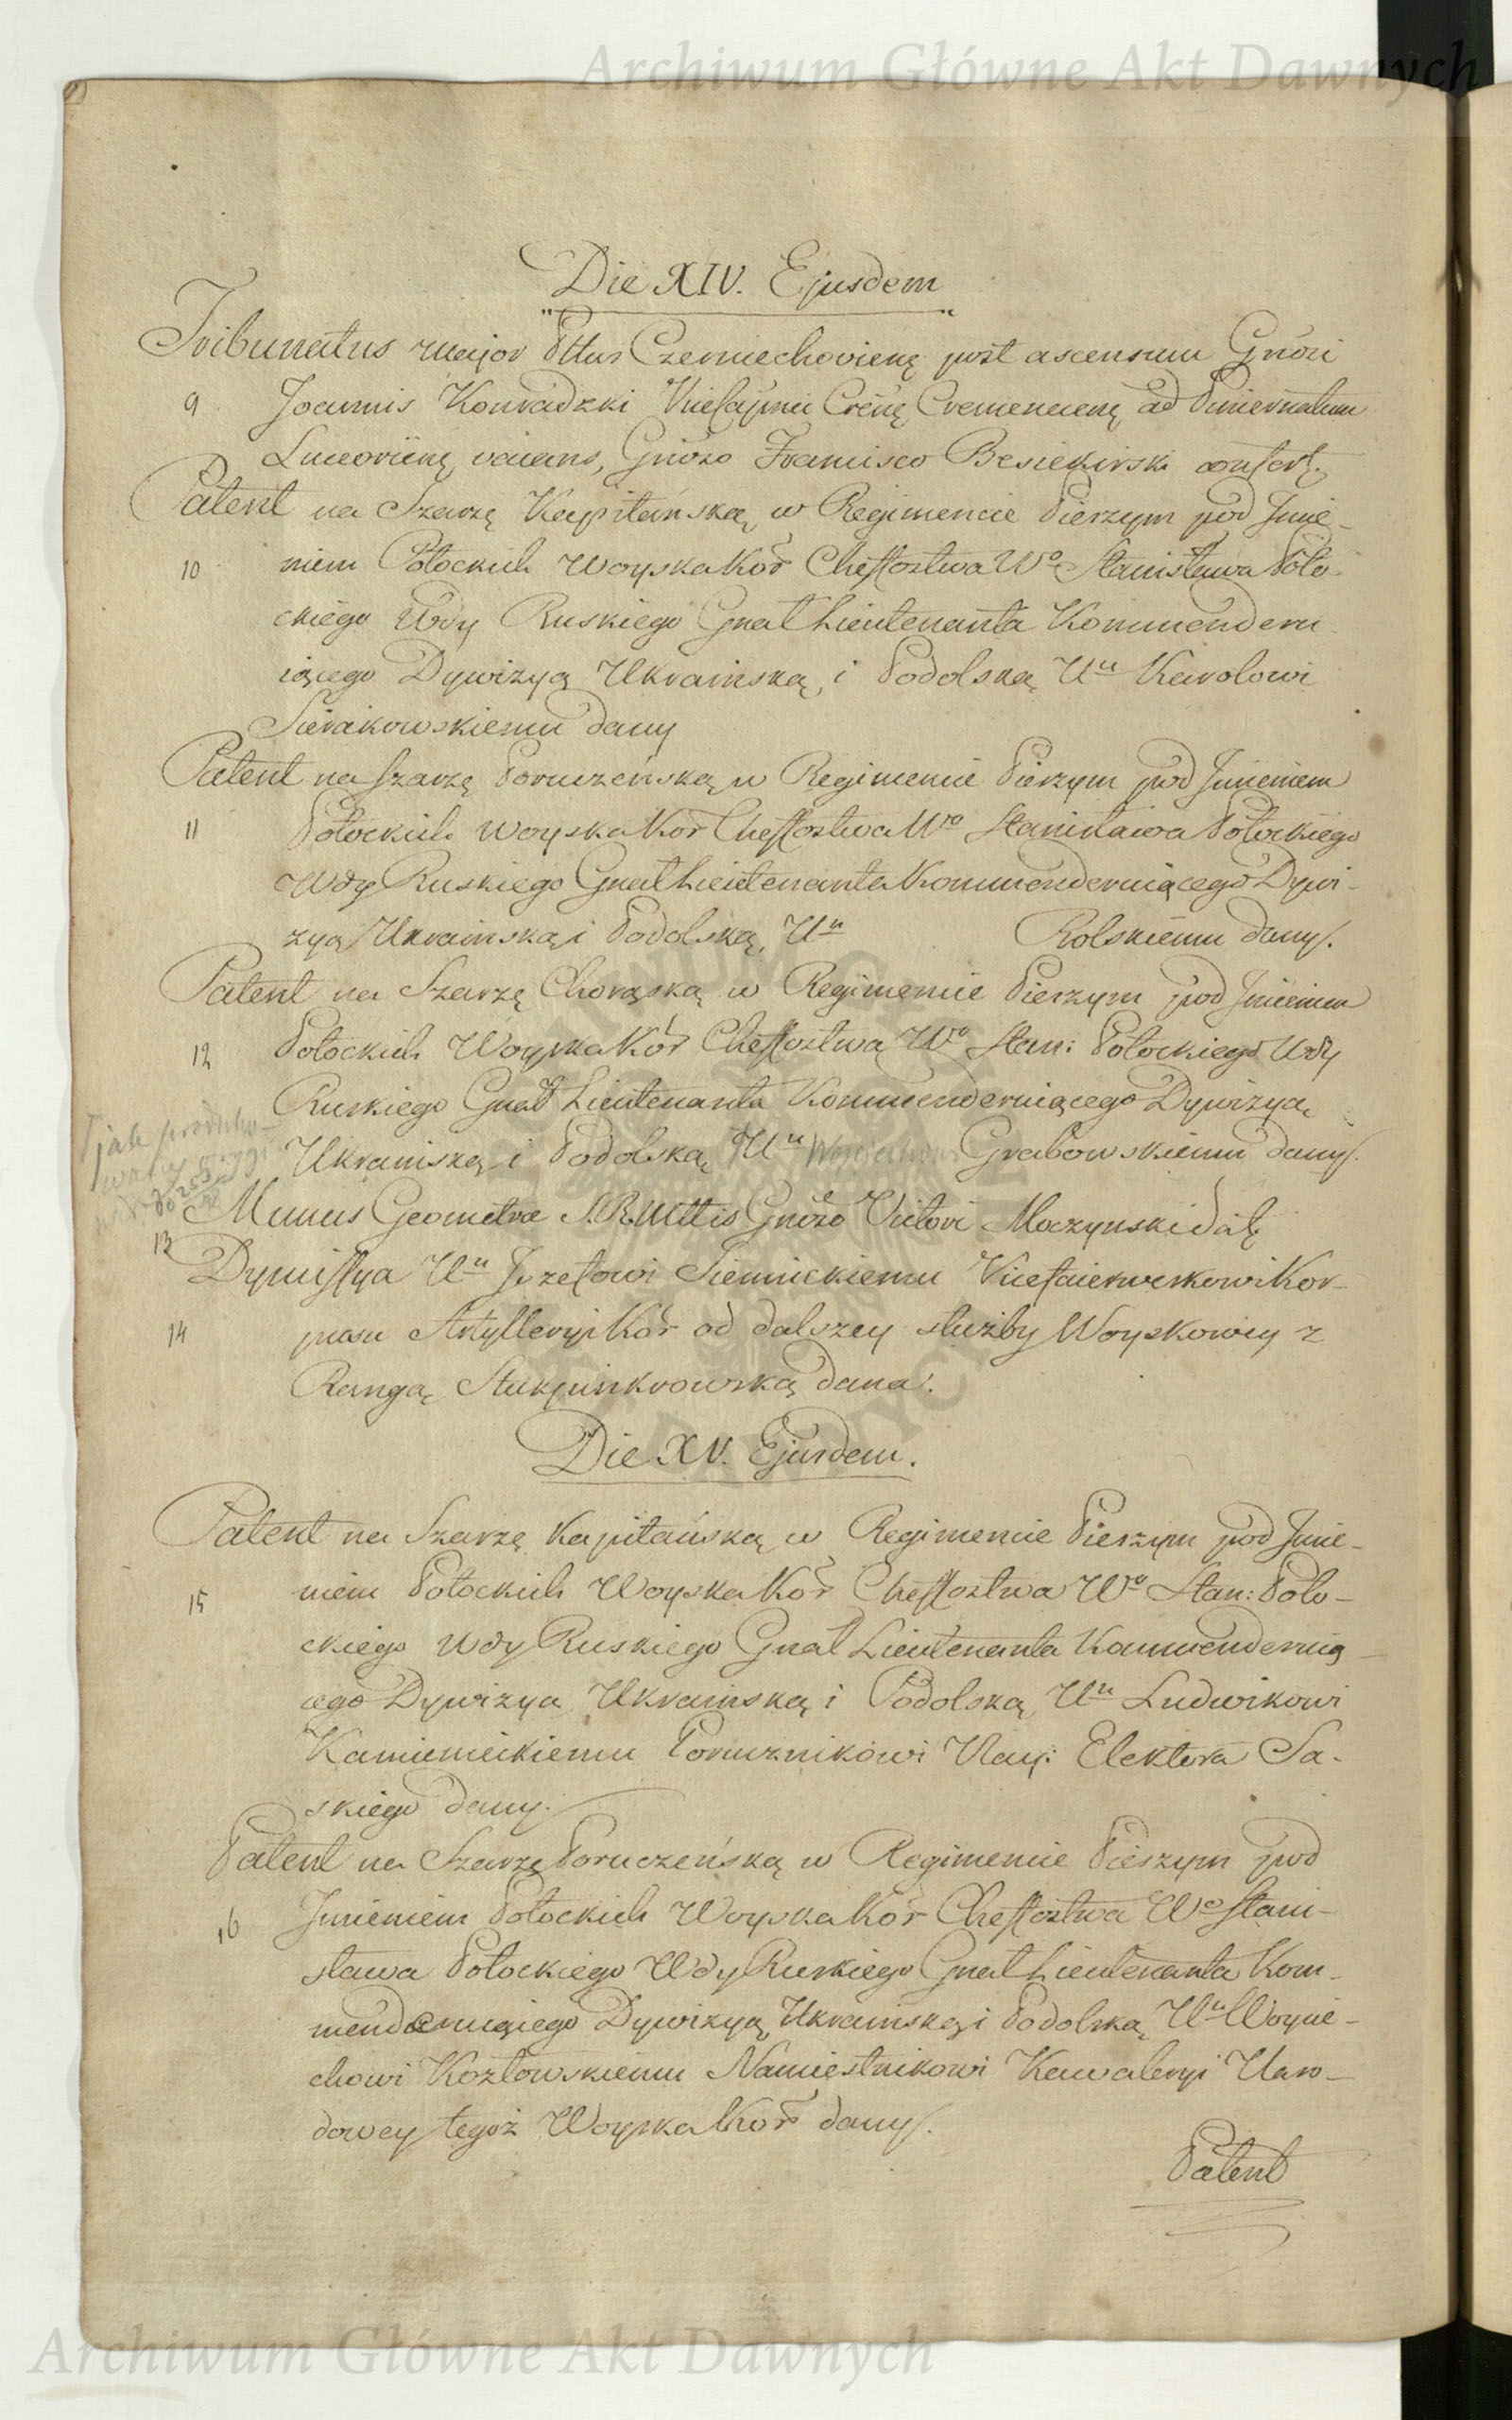 Archiwum Główne Akt Dawnych
Die XIV. Ejusdem
Tribunatus major Pttus Czerniechoviens post ascensum Gnosi
9 Joannis Konradzki Vicesajmii Crens Cremenecens ad Pincernatum
Luceoriens vacans, Gnoso Francisco Besiekirski confert.
Patent na Szarzę Kapitańską w Regimencie Pieszym pod Jmie-
10 niem Potockich Woyska Kor Cheffostwa Wo Stanisława Poto-
ckiego Wdy Ruskiego Gnał Lieutenanta Kommenderu-
iącego Dywizyą Ukrainską i Podolską Uu Karolowi
Sierakowskiemu dany
Patent na Szarzę Poruczeńską w Regimencie Pieszym pod Jmieniem
11 Potockich Woyska Kor Cheffostwa Wo Stanisława Potockiego
Wdy Ruskiego Gnał Lieutenanta Kommenderuiącego Dywi-
zyą Ukrainską i Podolską Uu Rolskiemu dany.
Patent na Szarzę Chorąską w Regimencie Pieszym pod Jmieniem
12 Potockich Woyska Kor Cheffostwa Wo Stan: Potockiego Wdy
Ruskiego Gnał Lieutenanta Kommenderuiącego Dywizyą
Ukrainską i Podolską Uu Woyciechowi Grabowskiemu dany.
jak
Munus Geometrae S.R.Mttis Gnoso Victori Moczynski dat
13
Dymissya Uu Jozefowi Siemickiemu Vicefaierwerkowi Kor-
14 pusu Artylleryi Kor od dalszey służby Woyskowey z
Rangą Stukjunkrowską dana.
Die XV. Ejusdem.
Patent na Szarzę Kapitańską w Regimencie Pieszym pod Jmie-
15 niem Potockich Woyska Kor Cheffostwa Wo Stan: Poto-
ckiego Wdy Ruskiego Gnał Lieutenanta Kommenderuią-
cego Dywizyą Ukrainską i Podolską Uu Ludwikowi
Kamienieckiemu Porucznikowi Nay: Elektora Sa-
skiego dany.
Patent na Szarzę Poruczeńską w Regimencie Pieszym pod
16 Jmieniem Potockich Woyska Kor Cheffostwa Wo Stani-
sława Potockiego Wdy Ruskiego Gnał Lieutenanta Kom-
menderuiącego Dywizyą Ukrainską i Podolską Uu Woycie-
chowi Kozłowskiemu Namiestnikowi Kawaleryi Naro-
dowey tegoż Woyska Kor dany.
Patent
Archiwum Główne Akt Dawnych